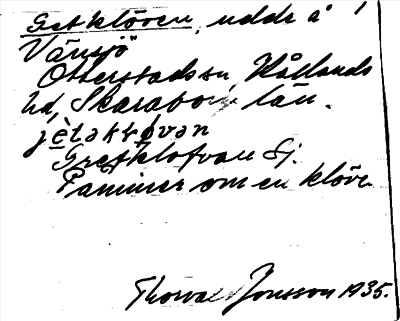 Getklöven, udde å
Vänsjö
Otterstads sn, Kållands
hd, Skaraborgs län.
jètəkļøvən
Gretklofvan Gj.
Påminner om en klöve
Thorvald Jonsson 1935.